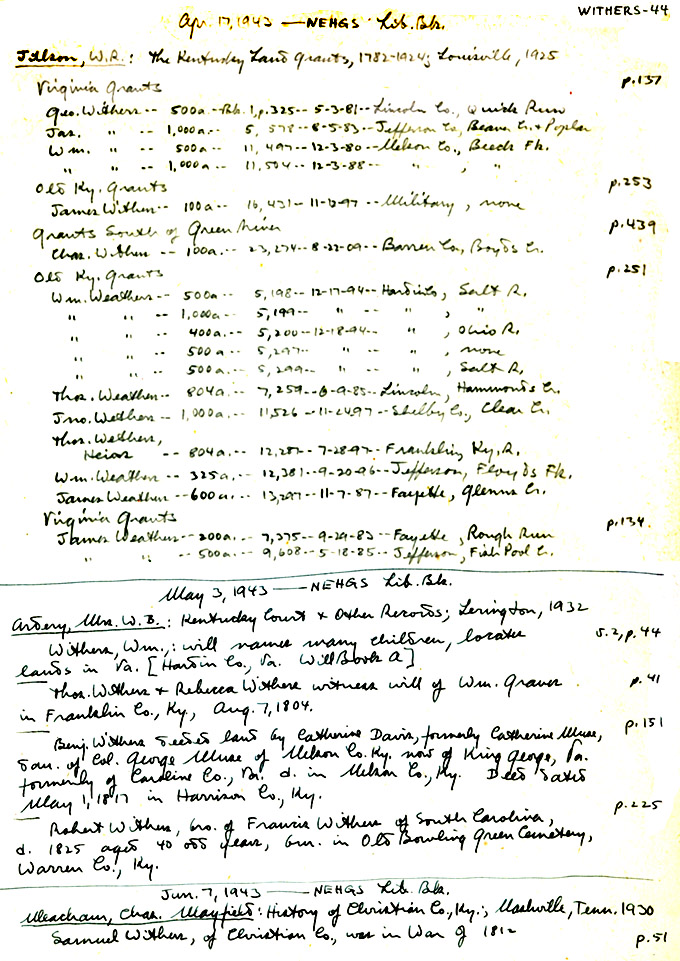 WITHERS-44
Apr. 17, 1943 — NEHGS Lib. Bk.
Jillson, W.R.: The Kentucky Land Grants, 1782-1924; Louisville, 1925
Virginia Grants p.137
Geo. Withers -- 500a. -- Bk. 1, p.325 -- 5-3-81 -- Lincoln Co., Quick Run
Jas. " -- 1,000a. -- 5, 578 -- 8-5-83 -- Jefferson Co., Beaver Cr. & Poplar
Wm. " -- 500a -- 11, 497 -- 12-3-80 -- Nelson Co., Beech Fk.
" " -- 1,000a -- 11, 504 -- 12-3-88 -- " , "
Old Ky. Grants p.253
James Withers -- 100a -- 16, 431 -- 11-13-97 -- Military , none
Grants South of Green River p.439
Chas. Withers -- 100a. -- 23, 274 -- 8-22-09 -- Barren Co., Boyds Cr.
Old Ky. Grants p.251
Wm. Weathers -- 500a -- 5, 198 -- 12-17-94 -- Hardin Co., Salt R.
" " -- 1,000a -- 5, 199 -- " -- " , "
" " -- 400a. -- 5, 200 -- 12-18-94 -- " , Ohio R.
" " -- 500a -- 5, 297 -- " -- " , none
" " -- 500a -- 5, 299 -- " -- " , Salt R.
Thos. Weathers -- 804a. -- 7, 259 -- 6-9-85 -- Lincoln, Hammonds Cr.
Jno. Wethers -- 1,000a. -- 11,526 -- 11-24-97 -- Shelby Co., Clear Cr.
Thos. Wethers,
Heirs -- 804a. -- 12,282 -- 7-28-97 -- Franklin, Ky. R.
Wm. Weathers -- 325a -- 12,381 -- 9-20-96 -- Jefferson, Floyds Fk.
James Weathers -- 600a -- 13,297 -- 11-7-87 -- Fayette, Glenns Cr.
Virginia Grants p.134
James Weathers -- 200a. -- 7,375 -- 9-29-83 -- Fayette, Rough Run
" " -- 500a -- 9,608 -- 5-18-85 -- Jefferson, Fish Pool Cr.
May 3, 1943 — NEHGS Lib. Bk.
Ardery, Mrs. W.B.: Kentucky Court & Other Records; Lexington, 1932
Withers, Wm.,: will names many children, locates s.2, p.44
lands in Va. [Hardin Co., Va. Will Book A]
Thos. Withers & Rebecca Withers witness will of Wm. Graves p.41
in Franklin Co., Ky., Aug. 7, 1804.
Benj. Withers deeded land by Catherine Davis, formerly Catherine Muse, p.151
dau. of Col. George Muse of Nelson Co. Ky. now of King George, Va.
formerly of Caroline Co., Va. d. in Nelson Co., Ky. Deed dated
May 1, 1817 in Harrison Co., Ky.
Robert Withers, bro. of Francis Withers of South Carolina, p.225
d. 1825 aged 40 odd years, bur. in Old Bowling Green Cemetery,
Warren Co., Ky.
Jun. 7, 1943 — NEHGS Lib. Bk.
Meacham, Chas. Mayfield: History of Christian Co., Ky.; Nashville, Tenn. 1930
Samuel Withers, of Christian Co., was in War of 1812 p.51